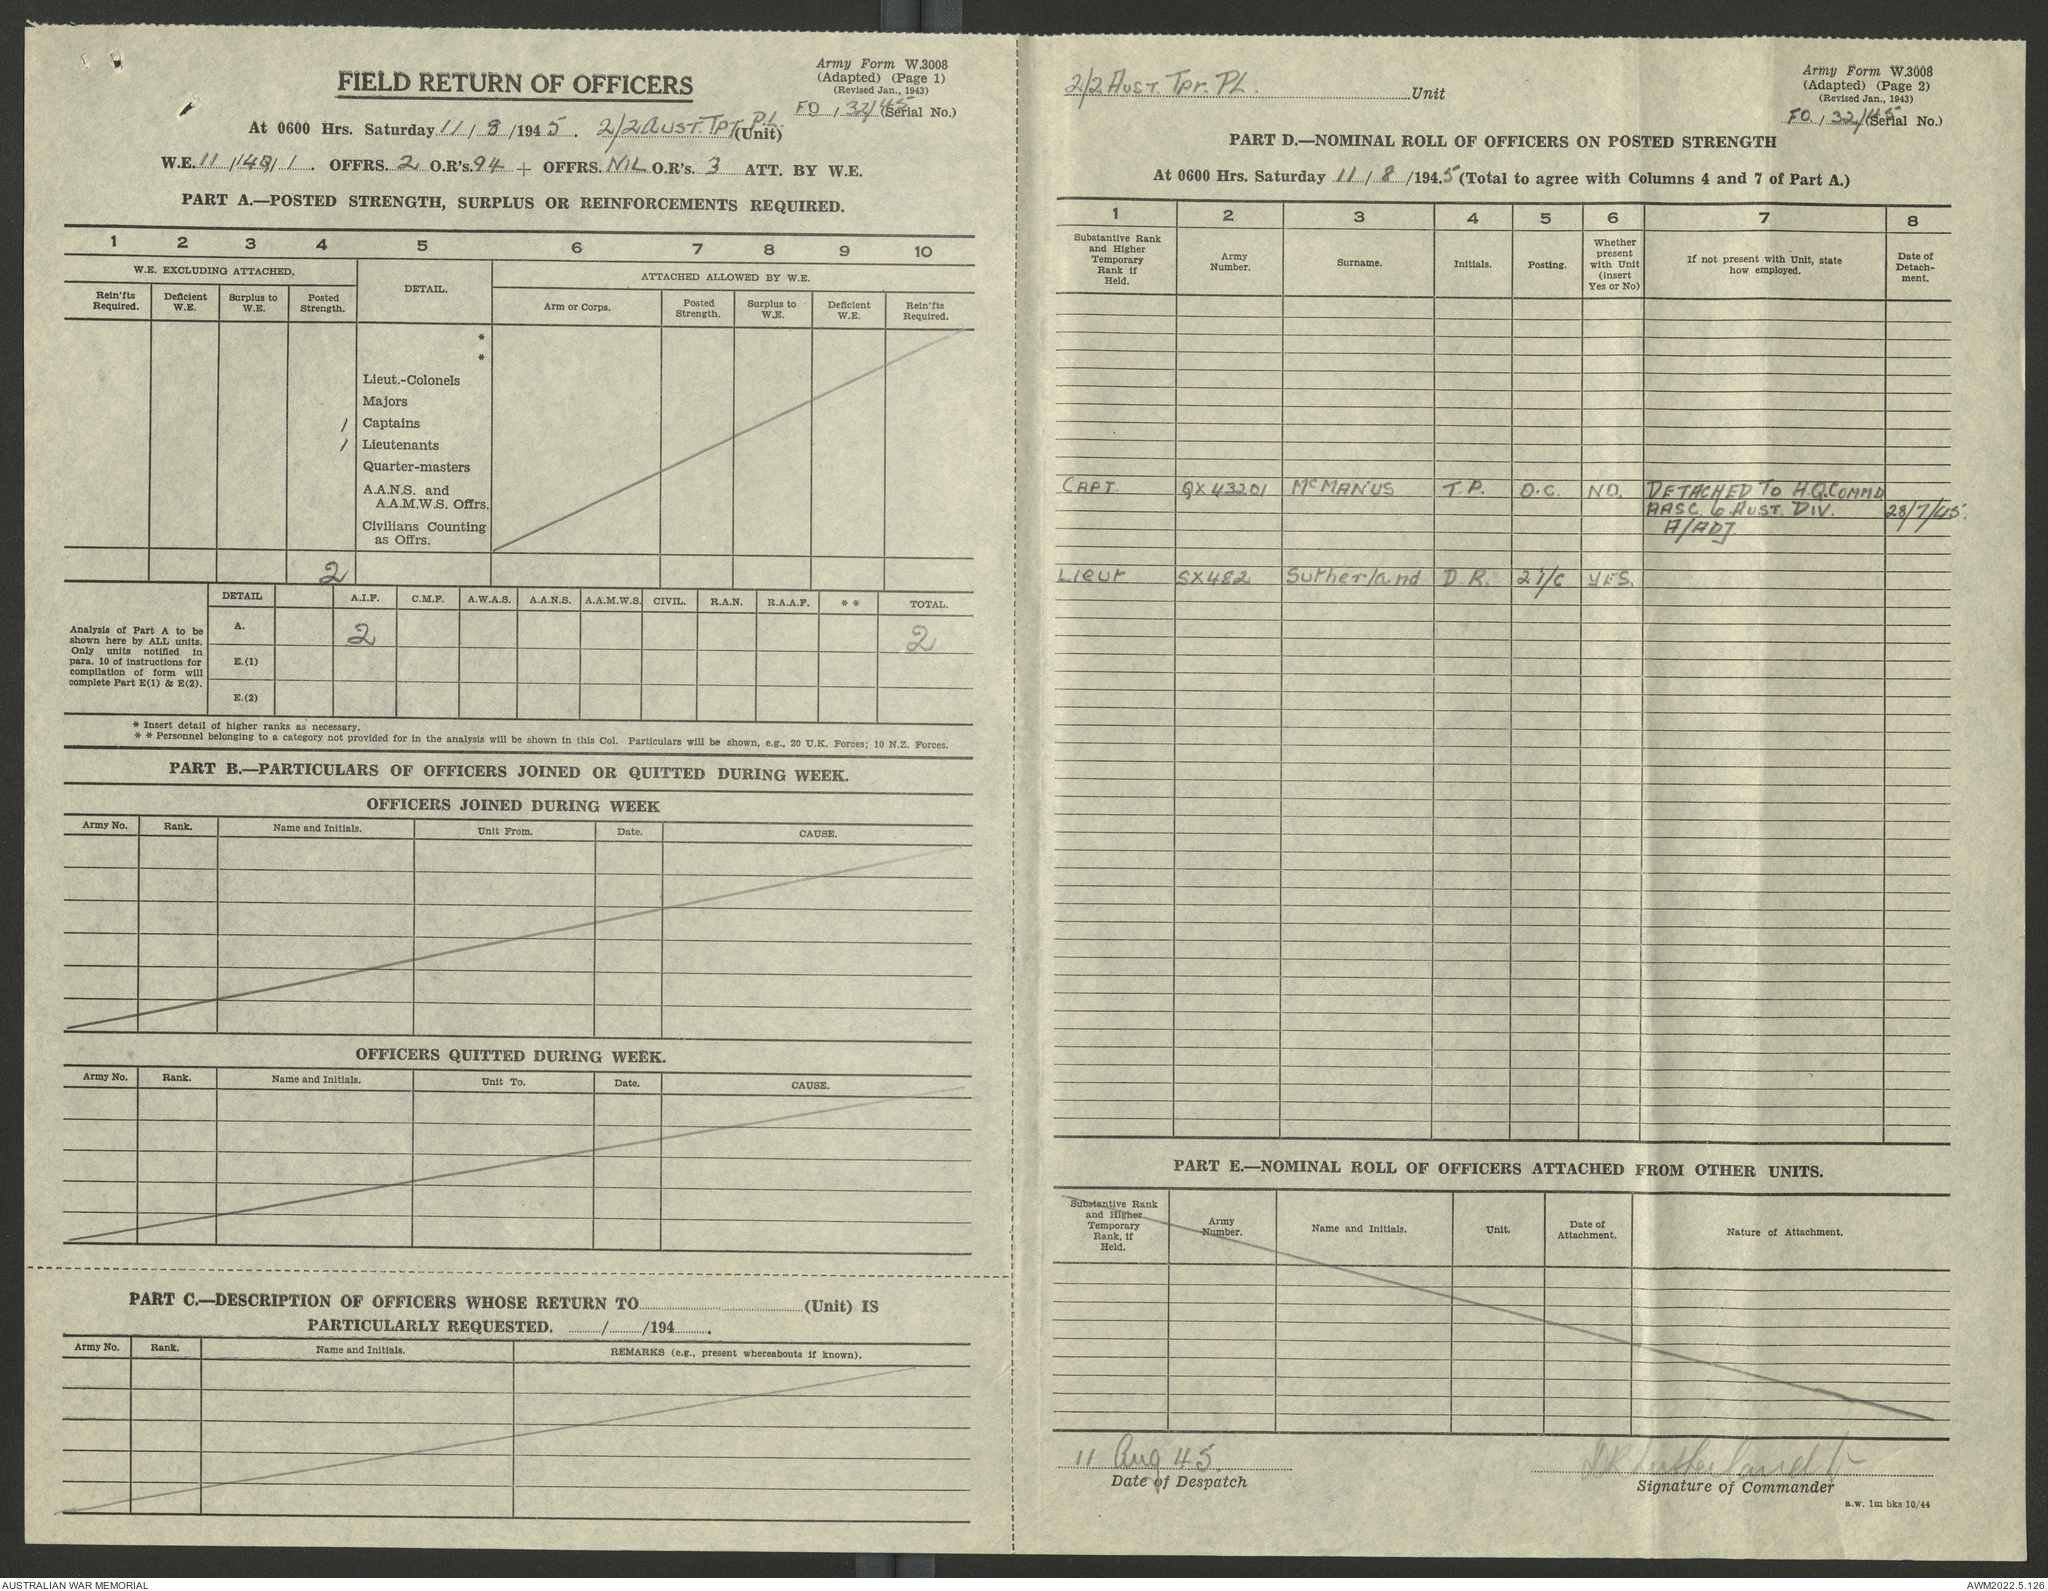 FIELD RETURN OF OFFICERS
Army Form W.3008
(Adapted) (Page 1)
(Revised Jan., 1943)
FO / 32/45 (Serial No.)
At 0600 Hrs. Saturday 11 / 8 /1945. 2/2 AUST. TPT. PL. (Unit)
W.E. 11 / 1 . OFFRS. 2 O.R's. 94 + OFFRS. NIL O.R's. 3 ATT. BY W.E.
PART A.—POSTED STRENGTH, SURPLUS OR REINFORCEMENTS REQUIRED.
1 2 3 4 5 6 7 8 9 10
W.E. EXCLUDING ATTACHED.
DETAIL.
ATTACHED ALLOWED BY W.E.
Rein'fts Required.
Deficient W.E.
Surplus to W.E.
Posted Strength.
Arm or Corps.
Posted Strength.
Surplus to W.E.
Deficient W.E.
Rein'fts Required.
*
*
Lieut.-Colonels
Majors
1 Captains
1 Lieutenants
Quarter-masters
A.A.N.S. and
A.A.M.W.S. Offrs.
Civilians Counting
as Offrs.
2
DETAIL A.I.F. C.M.F. A.W.A.S. A.A.N.S. A.A.M.W.S. CIVIL. R.A.N. R.A.A.F. * * TOTAL.
Analysis of Part A to be
shown here by ALL units.
Only units notified in
para. 10 of instructions for
compilation of form will
complete Part E(1) & E(2).
A. 2 2
E.(1)
E.(2)
* Insert detail of higher ranks as necessary.
* * Personnel belonging to a category not provided for in the analysis will be shown in this Col. Particulars will be shown, e.g., 20 U.K. Forces; 10 N.Z. Forces.
PART B.—PARTICULARS OF OFFICERS JOINED OR QUITTED DURING WEEK.
OFFICERS JOINED DURING WEEK
Army No. Rank. Name and Initials. Unit From. Date. CAUSE.
OFFICERS QUITTED DURING WEEK.
Army No. Rank. Name and Initials. Unit To. Date. CAUSE.
PART C.—DESCRIPTION OF OFFICERS WHOSE RETURN TO (Unit) IS
PARTICULARLY REQUESTED. / /194 .
Army No. Rank. Name and Initials. REMARKS (e.g., present whereabouts if known).
2/2 AUST. TPT. PL. Unit
Army Form W.3008
(Adapted) (Page 2)
(Revised Jan., 1943)
FO / 32/45 (Serial No.)
PART D.—NOMINAL ROLL OF OFFICERS ON POSTED STRENGTH
At 0600 Hrs. Saturday 11 / 8 /1945 (Total to agree with Columns 4 and 7 of Part A.)
1 2 3 4 5 6 7 8
Substantive Rank
and Higher
Temporary
Rank if
Held.
Army
Number.
Surname.
Initials.
Posting.
Whether
present
with Unit
(insert
Yes or No)
If not present with Unit, state
how employed.
Date of
Detach-
ment.
CAPT. QX 43201 McMANUS T.P. O.C. NO. DETACHED TO H.Q. COMMD
AASC 6 AUST. DIV. 28/7/45.
A/ADJ.
Lieut SX482 Sutherland D.R. 2 i/c YES.
PART E.—NOMINAL ROLL OF OFFICERS ATTACHED FROM OTHER UNITS.
Substantive Rank
and Higher
Temporary
Rank, if
Held.
Army
Number.
Name and Initials.
Unit.
Date of
Attachment.
Nature of Attachment.
11 Aug 45.
Date of Despatch
DR Sutherland Lt
Signature of Commander
a.w. 1m bks 10/44
AUSTRALIAN WAR MEMORIAL
AWM2022.5.126